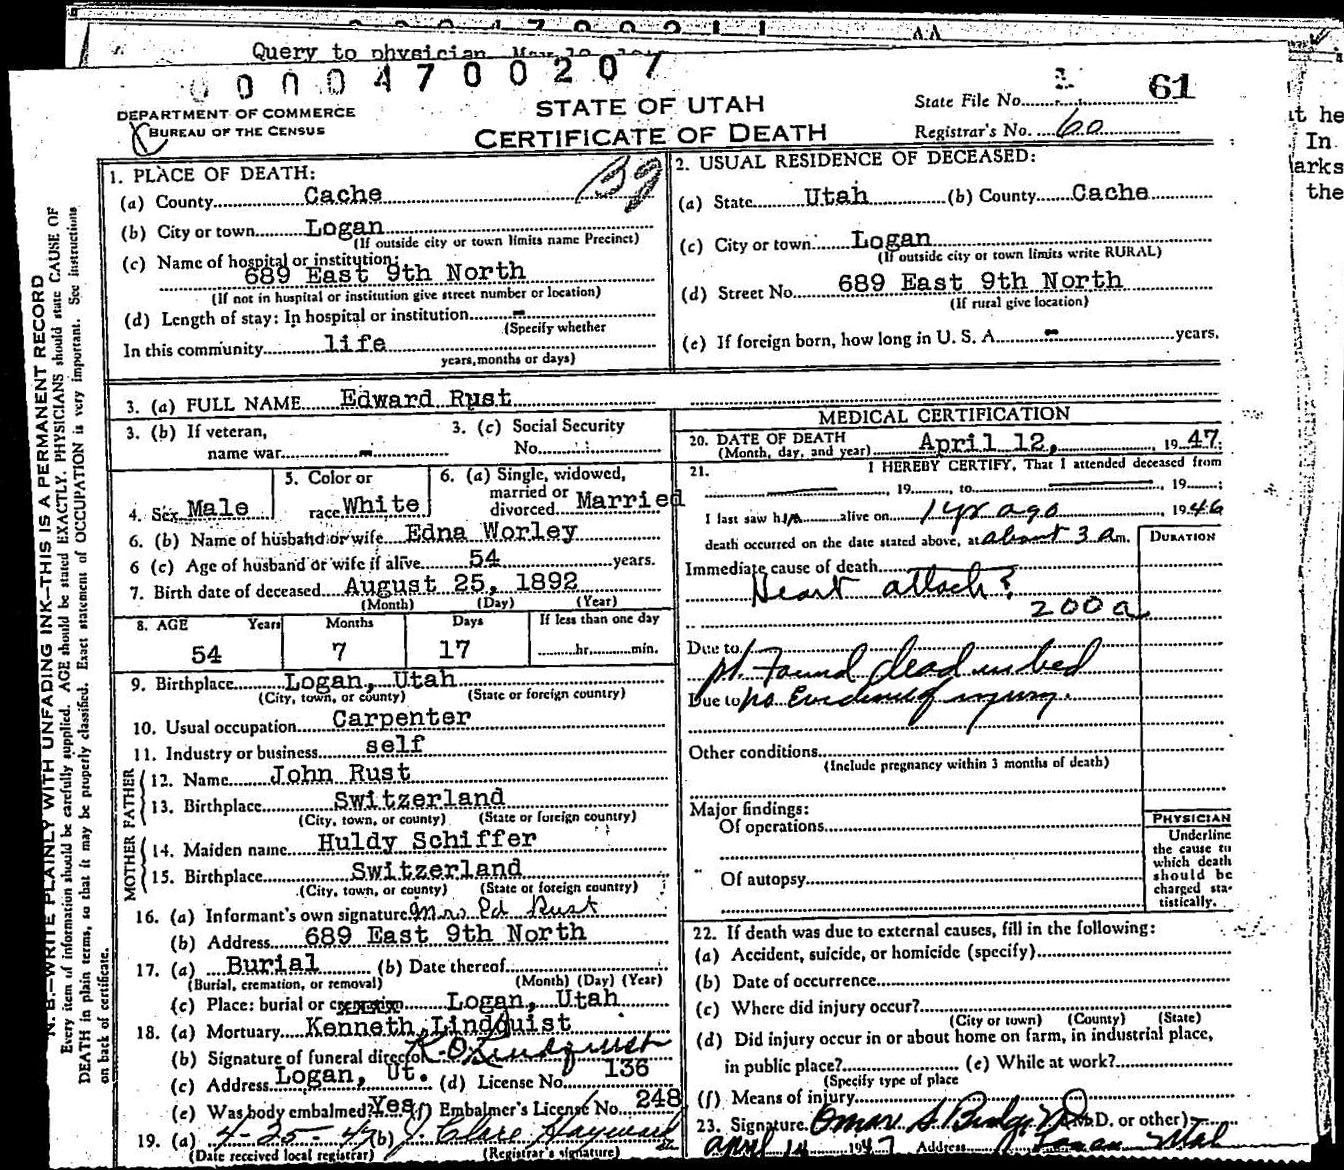 Query to physician
0 0 0 4 7 0 0 2 0 7
DEPARTMENT OF COMMERCE
BUREAU OF THE CENSUS
STATE OF UTAH
CERTIFICATE OF DEATH
State File No. 61
Registrar's No. 60
1. PLACE OF DEATH:
(a) County Cache
(b) City or town Logan
(If outside city or town limits name Precinct)
(c) Name of hospital or institution:
689 East 9th North
(If not in hospital or institution give street number or location)
(d) Length of stay: In hospital or institution -
(Specify whether
In this community life
years, months or days)
2. USUAL RESIDENCE OF DECEASED:
(a) State Utah (b) County Cache
(c) City or town Logan
(If outside city or town limits write RURAL)
(d) Street No. 689 East 9th North
(If rural give location)
(e) If foreign born, how long in U. S. A. - years.
3. (a) FULL NAME Edward Rust
3. (b) If veteran,
name war -
3. (c) Social Security
No.
4. Sex Male
5. Color or
race White
6. (a) Single, widowed,
married or
divorced Married
6. (b) Name of husband or wife Edna Worley
6 (c) Age of husband or wife if alive 54 years.
7. Birth date of deceased August 25, 1892
(Month) (Day) (Year)
8. AGE Years Months Days If less than one day
54 7 17 hr. min.
9. Birthplace Logan, Utah
(City, town, or county) (State or foreign country)
10. Usual occupation Carpenter
11. Industry or business self
FATHER
12. Name John Rust
13. Birthplace Switzerland
(City, town, or county) (State or foreign country)
MOTHER
14. Maiden name Huldy Schiffer
15. Birthplace Switzerland
(City, town, or county) (State or foreign country)
16. (a) Informant's own signature Mrs Ed Rust
(b) Address 689 East 9th North
17. (a) Burial (b) Date thereof
(Burial, cremation, or removal) (Month) (Day) (Year)
(c) Place: burial or Logan, Utah
18. (a) Mortuary Kenneth Lindquist
(b) Signature of funeral director K. O. Lindquist
(c) Address Logan, Ut. (d) License No. 136
(e) Was body embalmed? Yes (f) Embalmer's License No. 248
19. (a) 4-25-47 (b) J. Clare Hayward
(Date received local registrar) (Registrar's signature)
MEDICAL CERTIFICATION
20. DATE OF DEATH
(Month, day, and year) April 12, 1947
21. I HEREBY CERTIFY, That I attended deceased from
, 19 , to , 19 ;
I last saw him alive on 1 yr ago 1946
death occurred on the date stated above, at about 3 a m.
DURATION
Immediate cause of death
Heart attack?
200a
Due to pt. Found dead in bed
Due to no Evidence of injury.
Other conditions
(Include pregnancy within 3 months of death)
Major findings:
Of operations
Of autopsy
PHYSICIAN
Underline
the cause to
which death
should be
charged sta-
tistically.
22. If death was due to external causes, fill in the following:
(a) Accident, suicide, or homicide (specify)
(b) Date of occurrence
(c) Where did injury occur?
(City or town) (County) (State)
(d) Did injury occur in or about home on farm, in industrial place,
in public place? (e) While at work?
(Specify type of place
(f) Means of injury
23. Signature Omar S. Budge M.D. (M.D. or other)
April 14 1947 Address Logan Utah
N. B.—WRITE PLAINLY WITH UNFADING INK—THIS IS A PERMANENT RECORD
Every item of information should be carefully supplied. AGE should be stated EXACTLY. PHYSICIANS should state CAUSE OF
DEATH in plain terms, so that it may be properly classified. Exact statement of OCCUPATION is very important. See instructions
on back of certificate.
he
In
arks
the